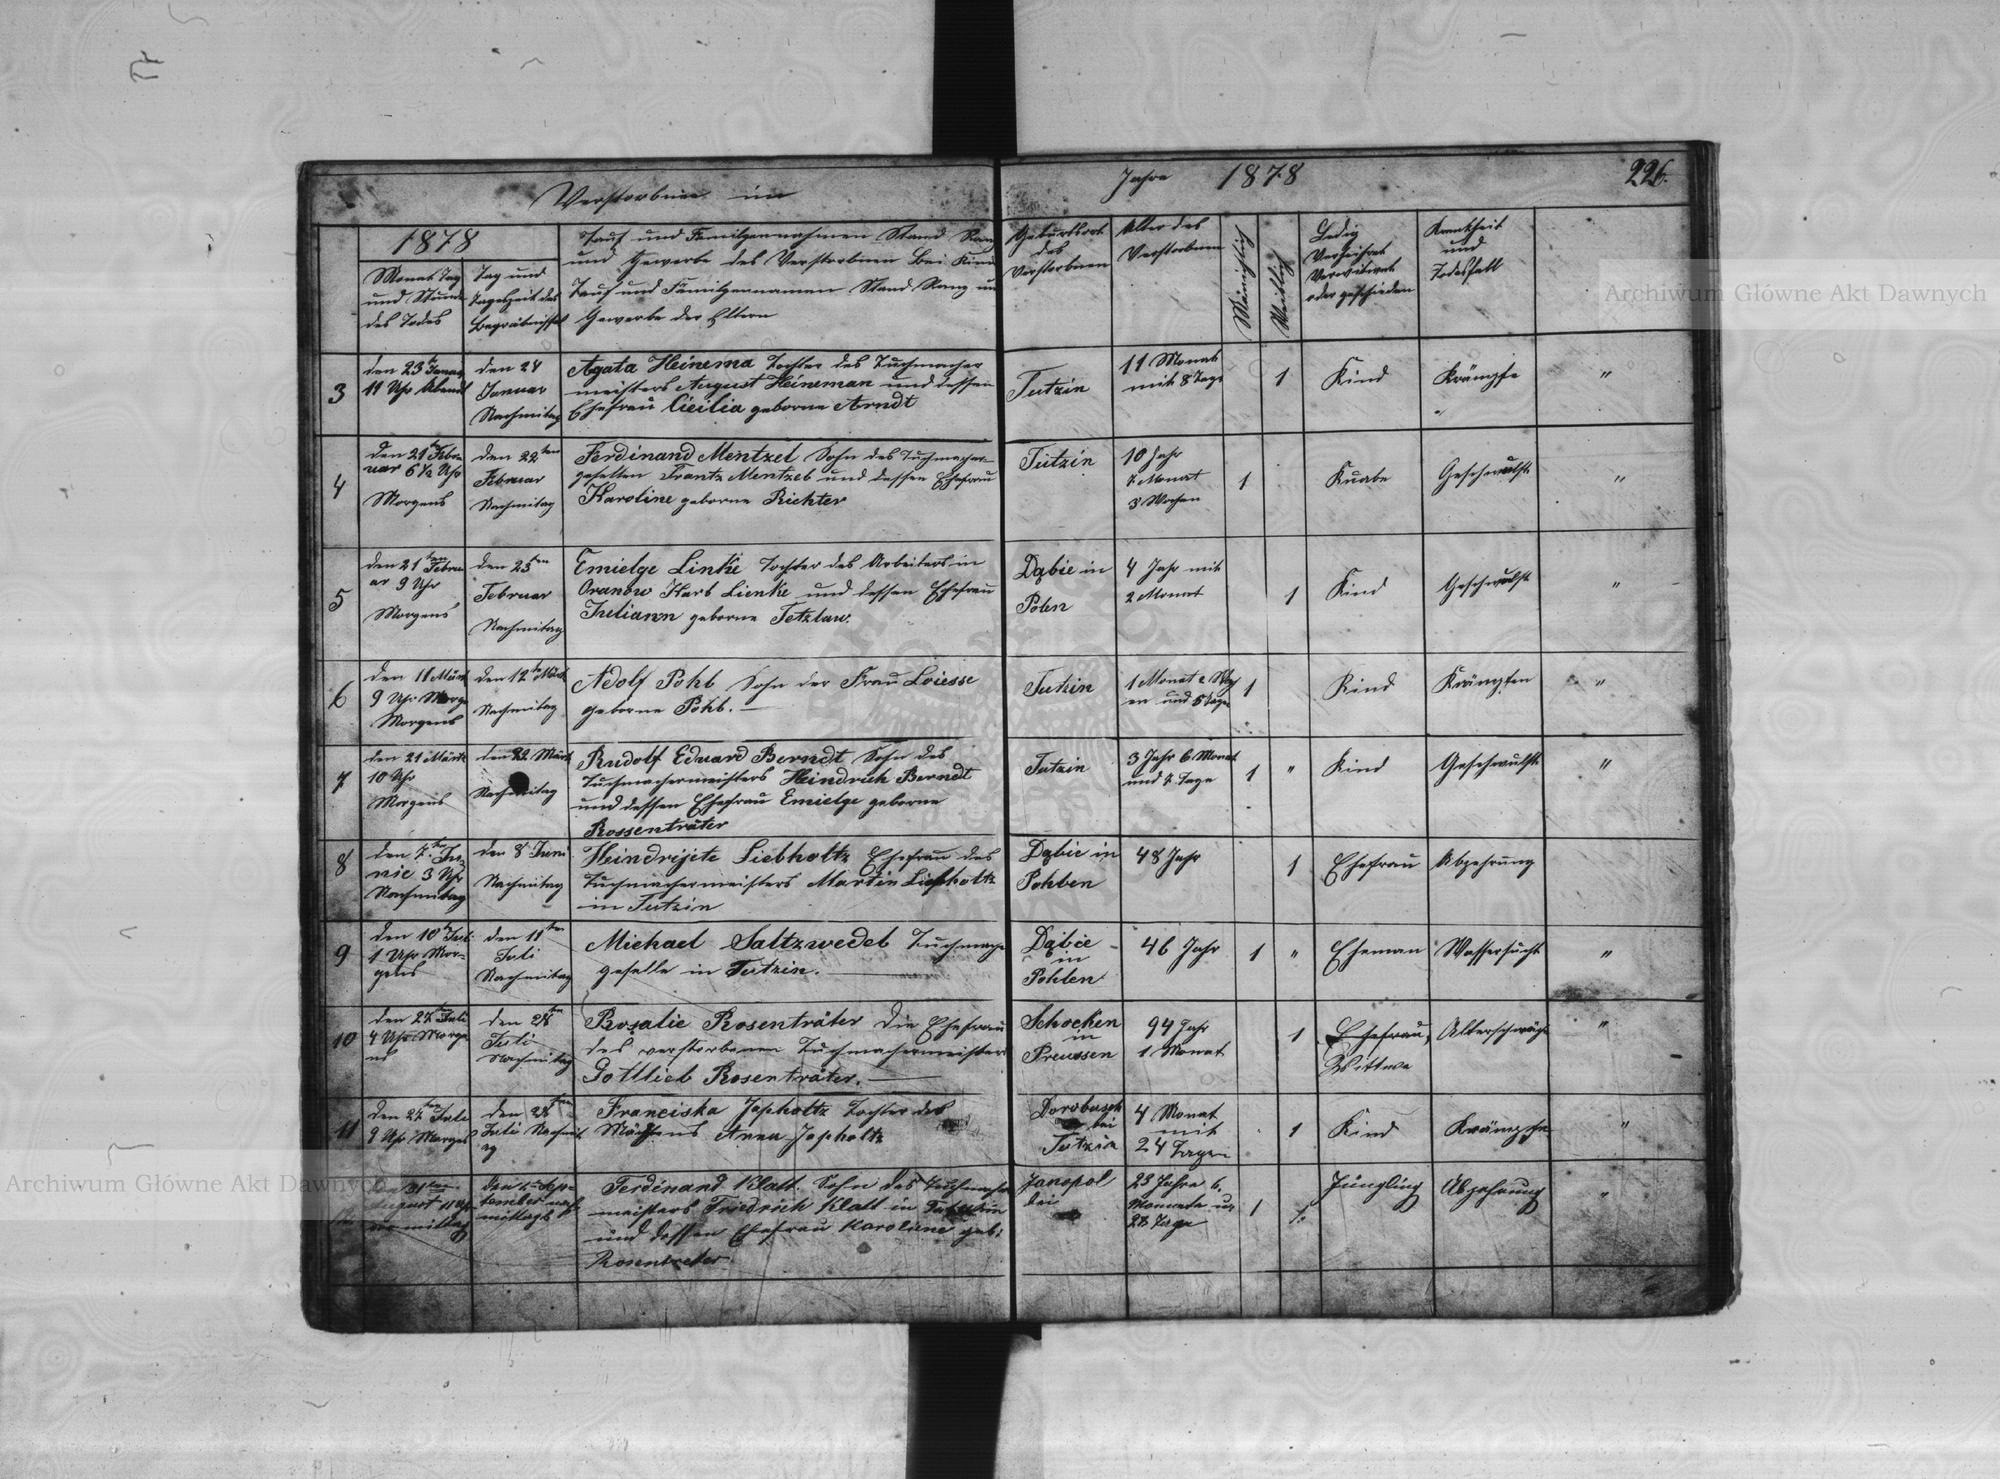 Verstorbene im Jahre 1878
226.
1878
Monat Tag
und Stunde
des Todes
Tag und
Tageszeit des
Begräbnisses
Tauf und Familgennahmen Stand Rang
und Gewerbe des Verstorbnen bei Kind
Tauf und Familgennamen Stand Rang un
Gewerbe der Eltern
Geburtsort
des
Verstorbnen
Alter des
Verstorbnen
Mänlich
Weiblig
Ledig
Verheirat
Verwitwet
oder geschieden
Krankheit
und
Todesfall
3
den 23t Januar
11 Uhr Abend
den 24
Januar
Nachmitag
Agata Heinema Tochter des Tuchmacher
meisters August Heineman und dessen
Ehefrau Cicilia geborne Arndt
Tutzin
11 Monat
mit 8 Tage
1
Kind
Krämpfe
"
4
den 21t Febru
uar 6 ½ Uhr
Morgens
den 22ten
Februar
Nachmitag
Ferdinand Mentzel Sohn des Tuchmacher-
gesellen Frantz Mentzel und dessen Ehefrau
Karoline geborne Richter
Tutzin
10 Jahr
7 Monat
3 Wochen
1
Knabe
Geschwulst
"
5
den 21ten Febru
ar 9 Uhr
Morgens
den 23ten
Februar
Nachmitag
Emielge Linke Tochter des Arbeiters in
Oranow Karl Lienke und dessen Ehefrau
Juliann geborne Tetzlaw.
Dąbie in
Polen
4 Jahr mit
2 Monat
1
Kind
Geschwulst
"
6
den 11 Märtz
9 Uhr Morge
Morgens
den 12t Märtz
Nachmitag
Adolf Pohl Sohn der Frau Loiesse
geborne Pohl.
Tutzin
1 Monat 2 Woch
en und 5 Tage
1
Kind
Krämpfen
"
7
den 21 Märtz
10 Uhr
Morgens
den 22 Märtz
Nachmitag
Rudolf Eduard Berndt Sohn des
Tuchmachermeisters Heindrich Berndt
und dessen Ehefrau Emielge geborne
Rossenträter
Tutzin
3 Jahr 6 Monat
und 2 Tage
1
"
Kind
Geschwulst
"
8
den 7.ten Ju-
nie 3 Uhr
Nachmitag
den 8 Juni
Nachmitag
Heindrijete Liebholtz Ehefrau des
Tuchmachermeisters Martin Liebholtz
in Tutzin
Dąbie in
Pohlen
48 Jahr
1
Ehefrau
Abzehrung
9
den 10t Juli
1 Uhr Mor-
gens
den 11ten
Juli
Nachmitag
Michael Saltzwedel Tuchmache
geselle in Tutzin.
Dąbie
in
Pohlen
46 Jahr
1
"
Eheman
Wassersucht
"
10
den 27t Juli
4 Uhr Morge
ns
den 28ten
Juli
Nachmitag
Rosalie Rosenträter die Ehefrau
des verstorbenen Tuchmachermeister
Gottlieb Rosenträter.
Schocken
in
Preussen
94 Jahr
1 Monat
1
Ehefrau,
Wittwe
Alterschwäche
"
11
den 27ten Juli
9 Uhr Morgens
den 28ten
Juli Nachmit
ag
Franciska Japholtz Tochter des
Mädchens Anna Japholtz
bei
Tutzin
4 Monat
mit
24 Tagen
1
Kind
Krämpfe
"
31ten
August 11 Uhr
vormittag
den 1ten Sep-
tember nach
mittags
Ferdinand Klatt Sohn des Tuchmacher
meisters Friedrich Klatt in Tutzin
und dessen Ehefrau Karoline geb:
Rosentreter.
Janopol
bei
23 Jahre 6.
Monnate un
28 Tage
1
Jüngling
Abzehrung
"
Archiwum Główne Akt Dawnych
Archiwum Główne Akt Dawnych